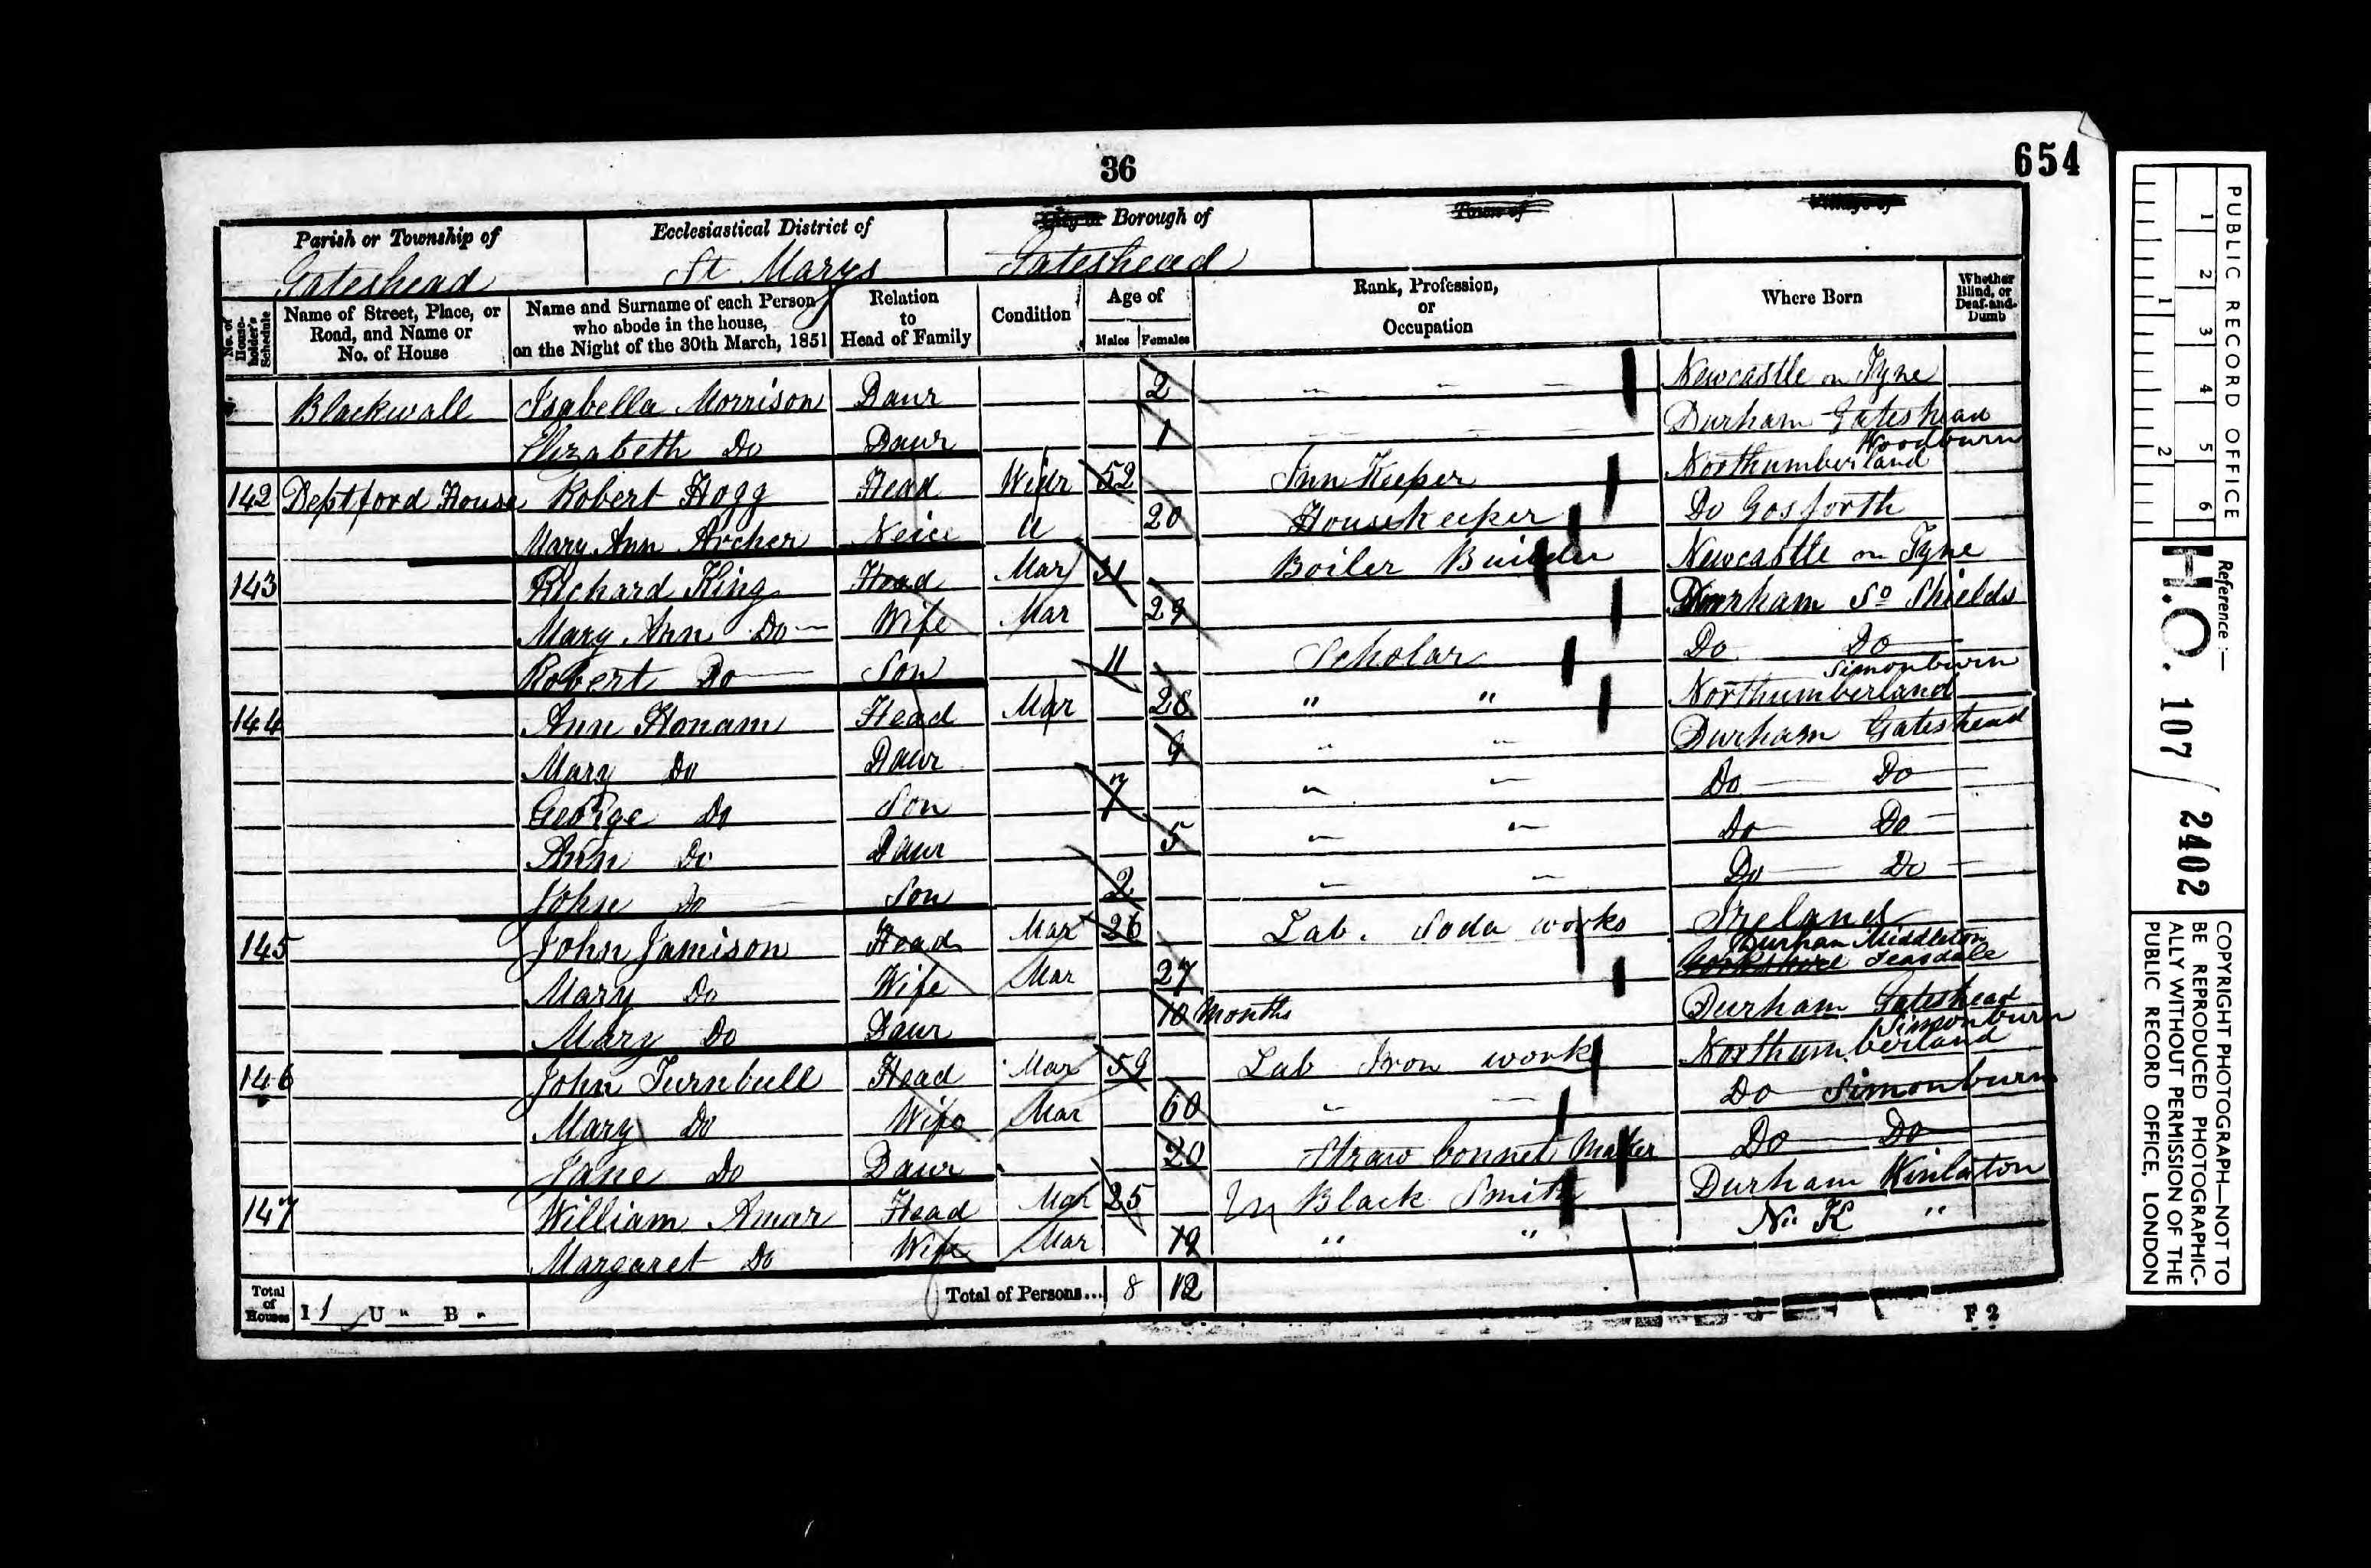 36
654
Parish or Township of
Gateshead
Ecclesiastical District of
St Marys
City or Borough of
Gateshead
Town of
Village of
No. of House-holder's Schedule
Name of Street, Place, or Road, and Name or No. of House
Name and Surname of each Person who abode in the house, on the Night of the 30th March, 1851
Relation to Head of Family
Condition
Age of
Males
Females
Rank, Profession, or Occupation
Where Born
Whether Blind, or Deaf-and-Dumb
Blackwall Isabella Morrison Daur 2 Newcastle on Tyne
Elizabeth Do Daur 1 Durham Gateshead
142 Deptford House Robert Hogg Head Widr 52 Inn Keeper Northumberland Woodburn
Mary Ann Archer Neice U 20 Housekeeper Do Gosforth
143 Richard King Head Mar 31 Boiler Builder Newcastle on Tyne
Mary Ann Do Wife Mar 29 Durham So Shields
Robert Do Son 11 Scholar Do Do
144 Ann Honam Head Mar 28 " " Northumberland Simonburn
Mary Do Daur 9 " " Durham Gateshead
George Do Son 7 " " Do Do
Ann Do Daur 5 " " Do Do
John Do Son 2 " " Do Do
145 John Jamison Head Mar 26 Lab. Soda works Ireland
Mary Do Wife Mar 27 Yorkshire Durham Middleton Teasdale
Mary Do Daur 10 Months Durham Gateshead
146 John Turnbull Head Mar 59 Lab Iron work Northumberland Simonburn
Mary Do Wife Mar 60 " " Do Simonburn
Jane Do Daur 20 Straw bonnet Maker Do Do
147 William Amar Head Mar 25 Black Smith Durham Winlaton
Margaret Do Wife Mar 19 " " N. K "
Total of Houses I 1 U " B "
Total of Persons... 8 12
F 2
PUBLIC RECORD OFFICE
1 2 3 4 5 6
1 2
Reference :—
H.O. 107 / 2402
COPYRIGHT PHOTOGRAPH—NOT TO
BE REPRODUCED PHOTOGRAPHIC-
ALLY WITHOUT PERMISSION OF THE
PUBLIC RECORD OFFICE, LONDON